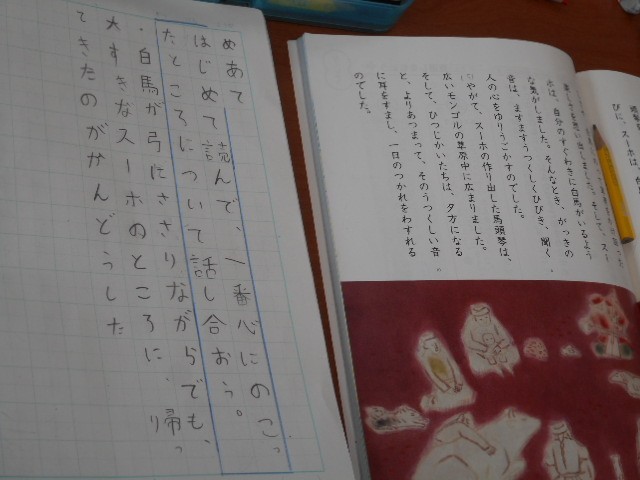 めあて
はじめて読んで、一番心にのこっ
たところについて話し合おう。
・白馬が弓にささりながらでも、
大すきなスーホのところに、帰っ
てきたのがかんどうした
びに、スーホは、
思い出しました。そして、スー
ホは、自分のすぐわきに白馬がいるよう
な気がしました。そんなとき、がっきの
音は、ますますうつくしくひびき、聞く
人の心をゆりうごかすのでした。
やがて、スーホの作り出した馬頭琴は、
広いモンゴルの草原中に広まりました。
そして、ひつじかいたちは、夕方になる
と、よりあつまって、そのうつくしい音
に耳をすまし、一日のつかれをわすれる
のでした。